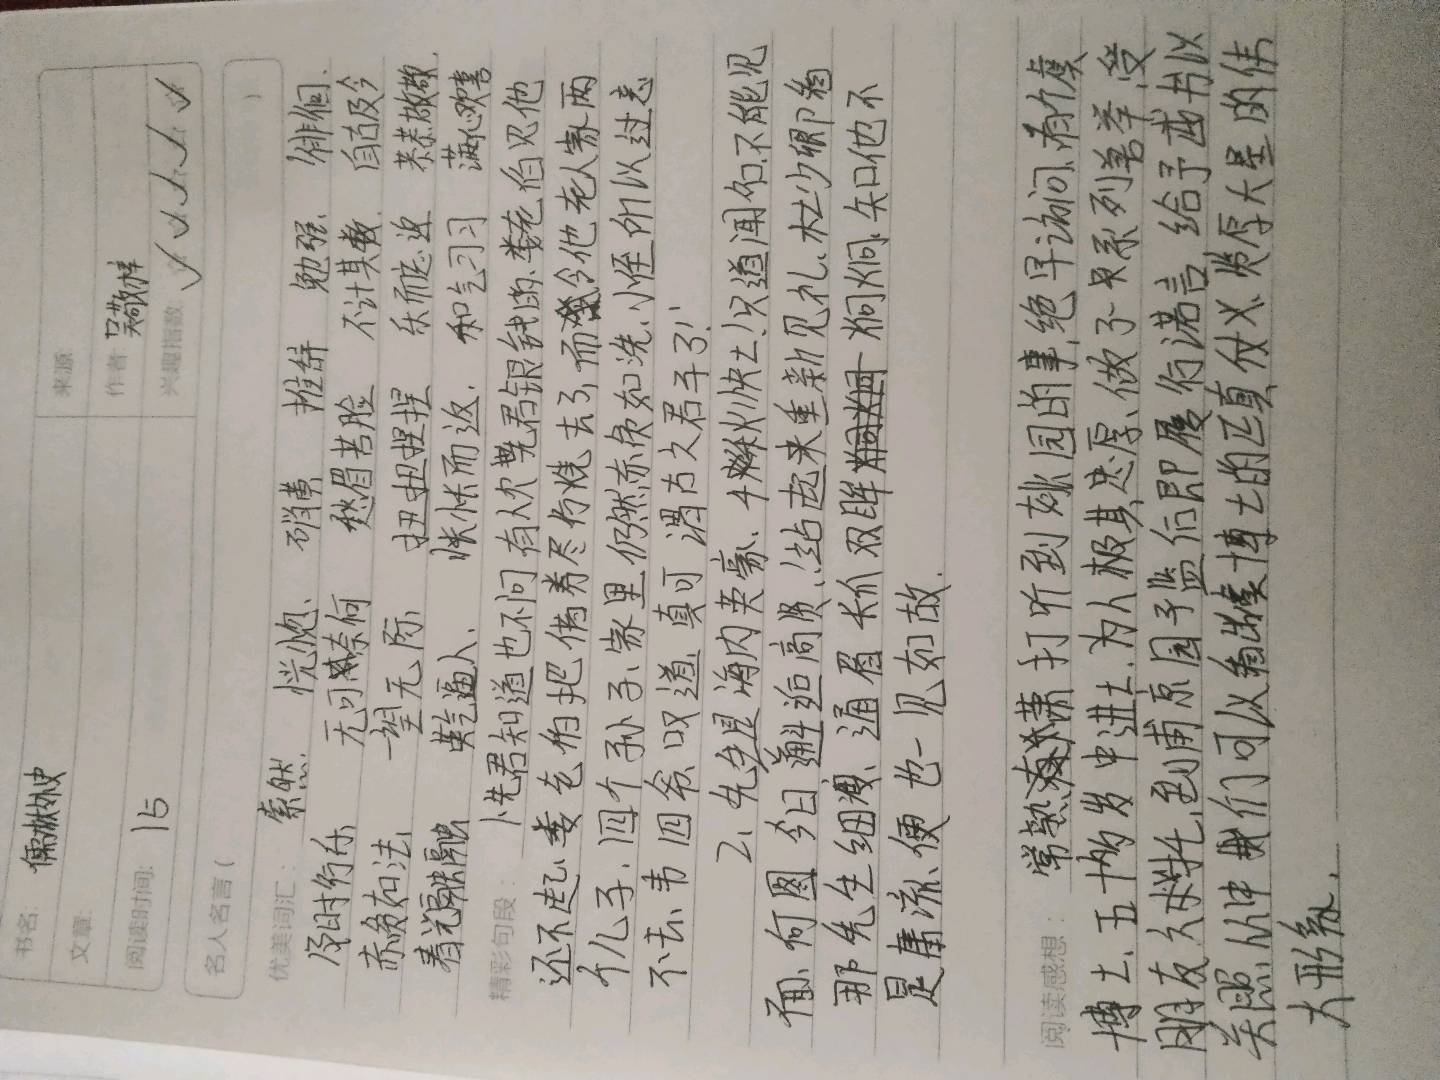 书名: 儒林外史 来源:
文章: 作者: 吴敬梓
阅读时间: 15 兴趣指数:
名人名言( )
优美词汇: 索然. 恍惚、 硝黄 推辞 勉强、 徘徊.
及时行乐 无可奈何 愁眉苦脸 不计其数 自古及今
赤贫如洗 一望无际 扭扭捏捏 乐而忘返 恭恭敬敬
着 英气逼人、 怅怅而返、 和气习习 满心欢喜
精彩句段: 1、先君知道也不问有人欠先君银钱的、娄老伯见他
还不起、娄老伯把借券尽行烧去了、而今他老人家两
个儿子、四个孙子、家里仍然赤贫如洗、小侄所以过意
不去、韦四爷叹道、真可谓古之君子了!
2、先生是海内英豪、千秋快士!只道闻名不能见
面、何图今日邂逅高贤、站起来重新见礼、杜少卿看
那先生细瘦、通眉长爪双眸炯炯、知他不
是庸流、便也一见如故.
阅读感想: 常熟 打听到姚园的事、绝早访问、有虞
博士、五十多岁中进士、为人极其忠厚、做了一只系列善举、受
朋友之托、到南京国子监后即履行诺言、给予武书以
关照、从中我们可以看出虞博士的正真仗义、浓厚大量的伟
大形象.